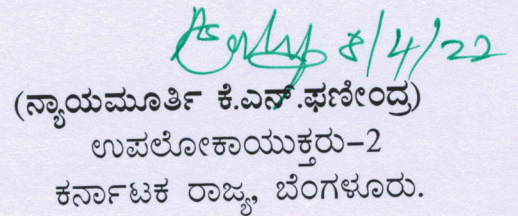 8/4/22
(ನ್ಯಾಯಮೂರ್ತಿ ಕೆ.ಎನ್.ಫಣೀಂದ್ರ)
ಉಪಲೋಕಾಯುಕ್ತರು-2
ಕರ್ನಾಟಕ ರಾಜ್ಯ, ಬೆಂಗಳೂರು.